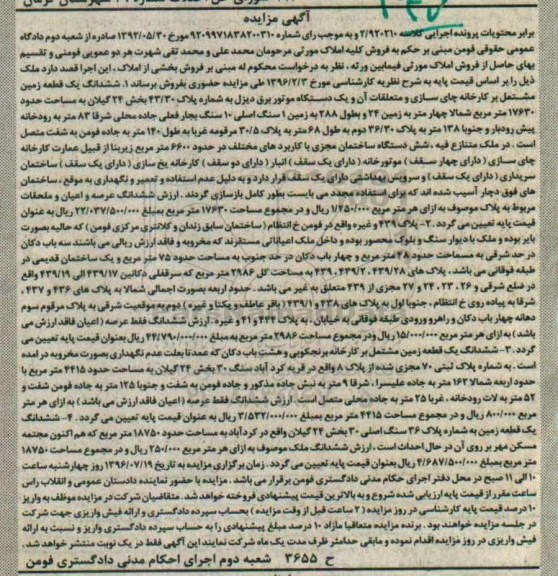 آگهی مزایده
برابر محتویات پرونده اجرایی کلاسه ۲/۹۲۰۲۱۰ و به موجب رای شماره ۹۲۰۹۹۷۱۸۳۸۲۰۰۳۱۰ مورخ ۱۳۹۲/۰۵/۳۰ صادره از شعبه دوم دادگاه
عمومی حقوقی فومن مبنی بر حکم به فروش کلیه املاک مورثی مرحومان محمد علی و محمد تقی شهرت هر دو عمویی فومنی و تقسیم
بهای حاصل از فروش املاک مورثی فیمابین ورثه ، نظر به درخواست محکوم له مبنی بر فروش بخشی از املاک ، این اجرا قصد دارد ملک
ذیل را بر اساس قیمت پایه به شرح نظریه کارشناسی مورخ ۱۳۹۶/۲/۳ طی مزایده حضوری بفروش برساند ۱. ششدانگ یک قطعه زمین
مشتمل بر کارخانه چای سازی و متعلقات آن و یک دستگاه موتور برق دیزل به شماره پلاک ۴۳/۳۰ بخش ۲۴ گیلان به مساحت حدود
۱۷۶۳۰ متر مربع شمالا چهار متر به زمین ۲۴ و بطول ۲۸۸ به زمین ۱ سنگ اصلی ۱۰ سنگ بجار فعلی جاده محلی شرقا ۸۳ متر به رودخانه
پیش رودبار و جنوبا ۱۳۸ متر به پلاک ۳۶/۳۰ دوم به طول ۶۸ متر به پلاک ۳۰/۵ مرقومه غربا به طول ۱۴۰ متر به جاده فومن به شفت متصل
است. در ملک متنازع فیه ، شش دستگاه ساختمان مجزی با کاربرد های مختلف در حدود ۶۶۰۰ متر مربع زیربنا از قبیل عمارت کارخانه
چای سازی ( دارای چهار سقف ) موتورخانه ( دارای یک سقف ) انبار ( دارای دو سقف ) کارخانه یخ سازی ( دارای یک سقف ) ساختمان
سریداری ( دارای یک سقف ) و سرویس بهداشتی دارای یک سقف قرار دارد و به دلیل عدم استفاده و تعمیر و نگهداری به موقع ، ساختمان
های فوق دچار آسیب شده اند که برای استفاده مجدد می بایست بطور کامل بازسازی گردند . ارزش ششدانگ عرصه و اعیان و ملحقات
مربوط به پلاک موصوف به ازای هر متر مربع ۱/۲۵۰/۰۰۰ ریال و در مجموع مساحت ۱۷۶۳۰ متر مربع بمبلغ ۲۲/۰۳۷/۵۰۰/۰۰۰ ریال به عنوان
قیمت پایه تعیین می گردد .۲- پلاک ۴۳۹ و غیره واقع در فومن خ انتظام ( ساختمان سابق زندان و کلانتری مرکزی فومن ) که حالیه بصورت
بایر بوده و ملک با دیوار سنگ و بلوک محصور بوده و داخل ملک اعیاناتی مستقرند که مخروبه و فاقد ارزش ریالی می باشند سه باب دکان
در حد شرقی به مساحت حدود ۴۸ متر مربع و چهار باب دکان در حد جنوب به مساحت حدود ۷۵ متر مربع و یک ساختمان قدیمی در
طبقه فوقانی می باشد ، پلاک های ۴۳۹/۲۸ ، ۴۳۹/۲ ، ۴۳۹ به مساحت کل ۲۹۸۶ متر مربع که سرقفلی دکاکین ۴۳۹/۱۷ الی ۴۳۹/۱۹ واقع
در ضلع شرقی و ۲۶ ، ۲۳ ، ۲۴ و ۲۷ مجزی از ۴۳۹ متعلق به غیر می باشد . حدود اربعه بصورت اجمالی شمالا به پلاک های ۴۳۶ و ۴۳۷ ،
شرقا به پیاده روی خ انتظام ، جنوبا اول به پلاک های ۴۳۸ و ۴۳۹/۱ ( باقر عاطف و یکتا و غیره ) دوم به موقعیت شرقی به پلاک مرقوم سوم
دهانه چهار باب دکان و راهرو ورودی طبقه فوقانی به خیابان ، به پلاک ۴۴۴ و ۴۱ و غیره . ارزش ششدانگ فقط عرصه ( اعیان فاقد ارزش می
باشد ) به ازای هر متر مربع ۱۵/۰۰۰/۰۰۰ ریال و در مجموع مساحت ۲۹۸۶ متر مربع به مبلغ ۴۴/۷۹۰/۰۰۰/۰۰۰ ریال بعنوان قیمت پایه تعیین می
گردد .۳- ششدانگ یک قطعه زمین مشتمل بر کارخانه برنجکوبی و هشت باب دکان که عمدتا بعلت عدم نگهداری بصورت مخروبه در آمده
است . به شماره پلاک ثبتی ۷۰ مجزی شده از پلاک ۸ واقع در قریه کرد آباد سنگ ۳۰ بخش ۲۴ گیلان به مساحت حدود ۴۴۱۵ متر مربع با
حدود اربعه شمالا ۱۶۲ متر به جاده علیسرا ، شرقا ۹ متر به نبش جاده مذکور و جاده فومن به شفت و جنوبا ۱۲۵ متر به جاده فومن شفت و
۵۲ متر به لات رودخانه ، غربا ۲۵ متر به جاده محلی متصل است . ارزش ششدانگ فقط عرصه ( اعیان فاقد ارزش می باشد ) به ازای هر متر
مربع ۸۰۰/۰۰۰ ریال و در مجموع مساحت ۴۴۱۵ متر مربع بمبلغ ۳/۵۳۲/۰۰۰/۰۰۰ ریال به عنوان قیمت پایه تعیین می گردد .۴- ششدانگ
یک قطعه زمین به شماره پلاک ۳۶ سنگ اصلی ۳۰ بخش ۲۴ گیلان واقع در کردآباد به مساحت حدود ۱۸۷۵۰ متر مربع که هم اکنون مجتمعه
مسکن مهر بر روی آن در حال احداث است . ارزش ششدانگ ملک موصوف به ازای هر متر مربع ۲۵۰/۰۰۰ ریال و در مجموع مساحت ۱۸۷۵۰
متر مربع بمبلغ ۴/۶۸۷/۵۰۰/۰۰۰ ریال بعنوان قیمت پایه تعیین می گردد . زمان برگزاری مزایده به تاریخ ۱۳۹۶/۰۷/۱۹ روز چهارشنبه ساعت
۱۰ الی ۱۱ صبح در محل دفتر اجرای حکام مدنی دادگستری فومن برقرار می باشد . مزایده با حضور نماینده دادستان عمومی و انقلاب راس
ساعت مقرر از قیمت پایه ارزیابی شده شروع و به بالاترین قیمت پیشنهادی فروخته خواهد شد . متقاضیان شرکت در مزایده موظف به واریز
۱۰ درصد قیمت پایه کارشناسی در روز مزایده ( ۲ ساعت قبل از وقت مزایده ) بحساب سپرده دادگستری و ارائه فیش واریزی جهت شرکت
در جلسه مزایده خواهند بود . برنده مزایده متعاقبا مازاد ۱۰ درصد مبلغ پیشنهادی را به حساب سپرده دادگستری واریز و نسبت به ارائه
فیش واریزی در روز مزایده اقدام نموده و مابقی حداکثر ظرف مدت یک ماه شرکت نمایند این آگهی فقط در یک نوبت منتشر خواهد شد .
ح ۳۶۵۵ شعبه دوم اجرای احکام مدنی دادگستری فومن